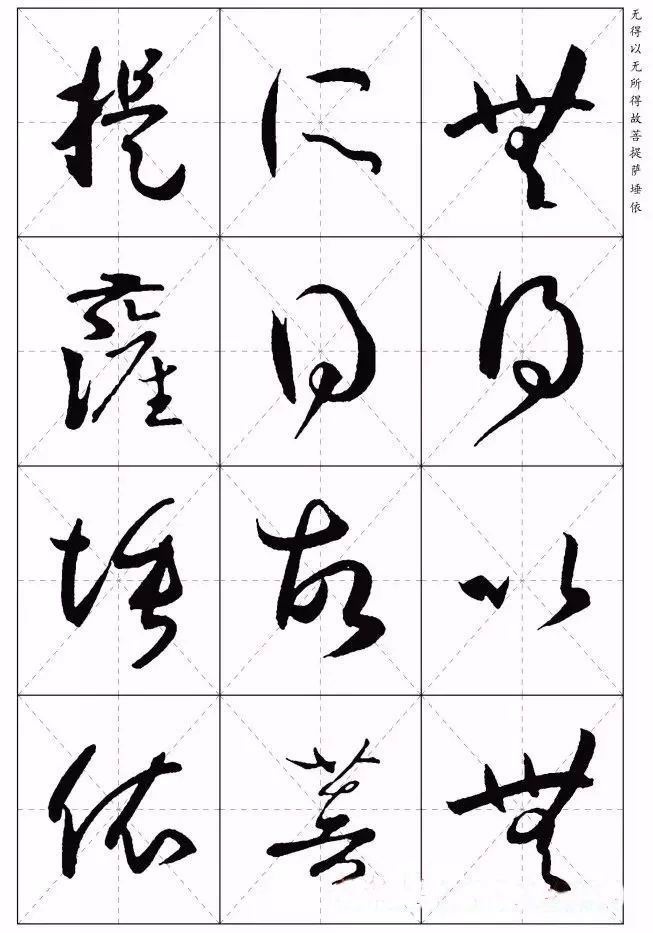 無得以無
所得故菩
提薩埵依
无得以无所得故菩提萨埵依